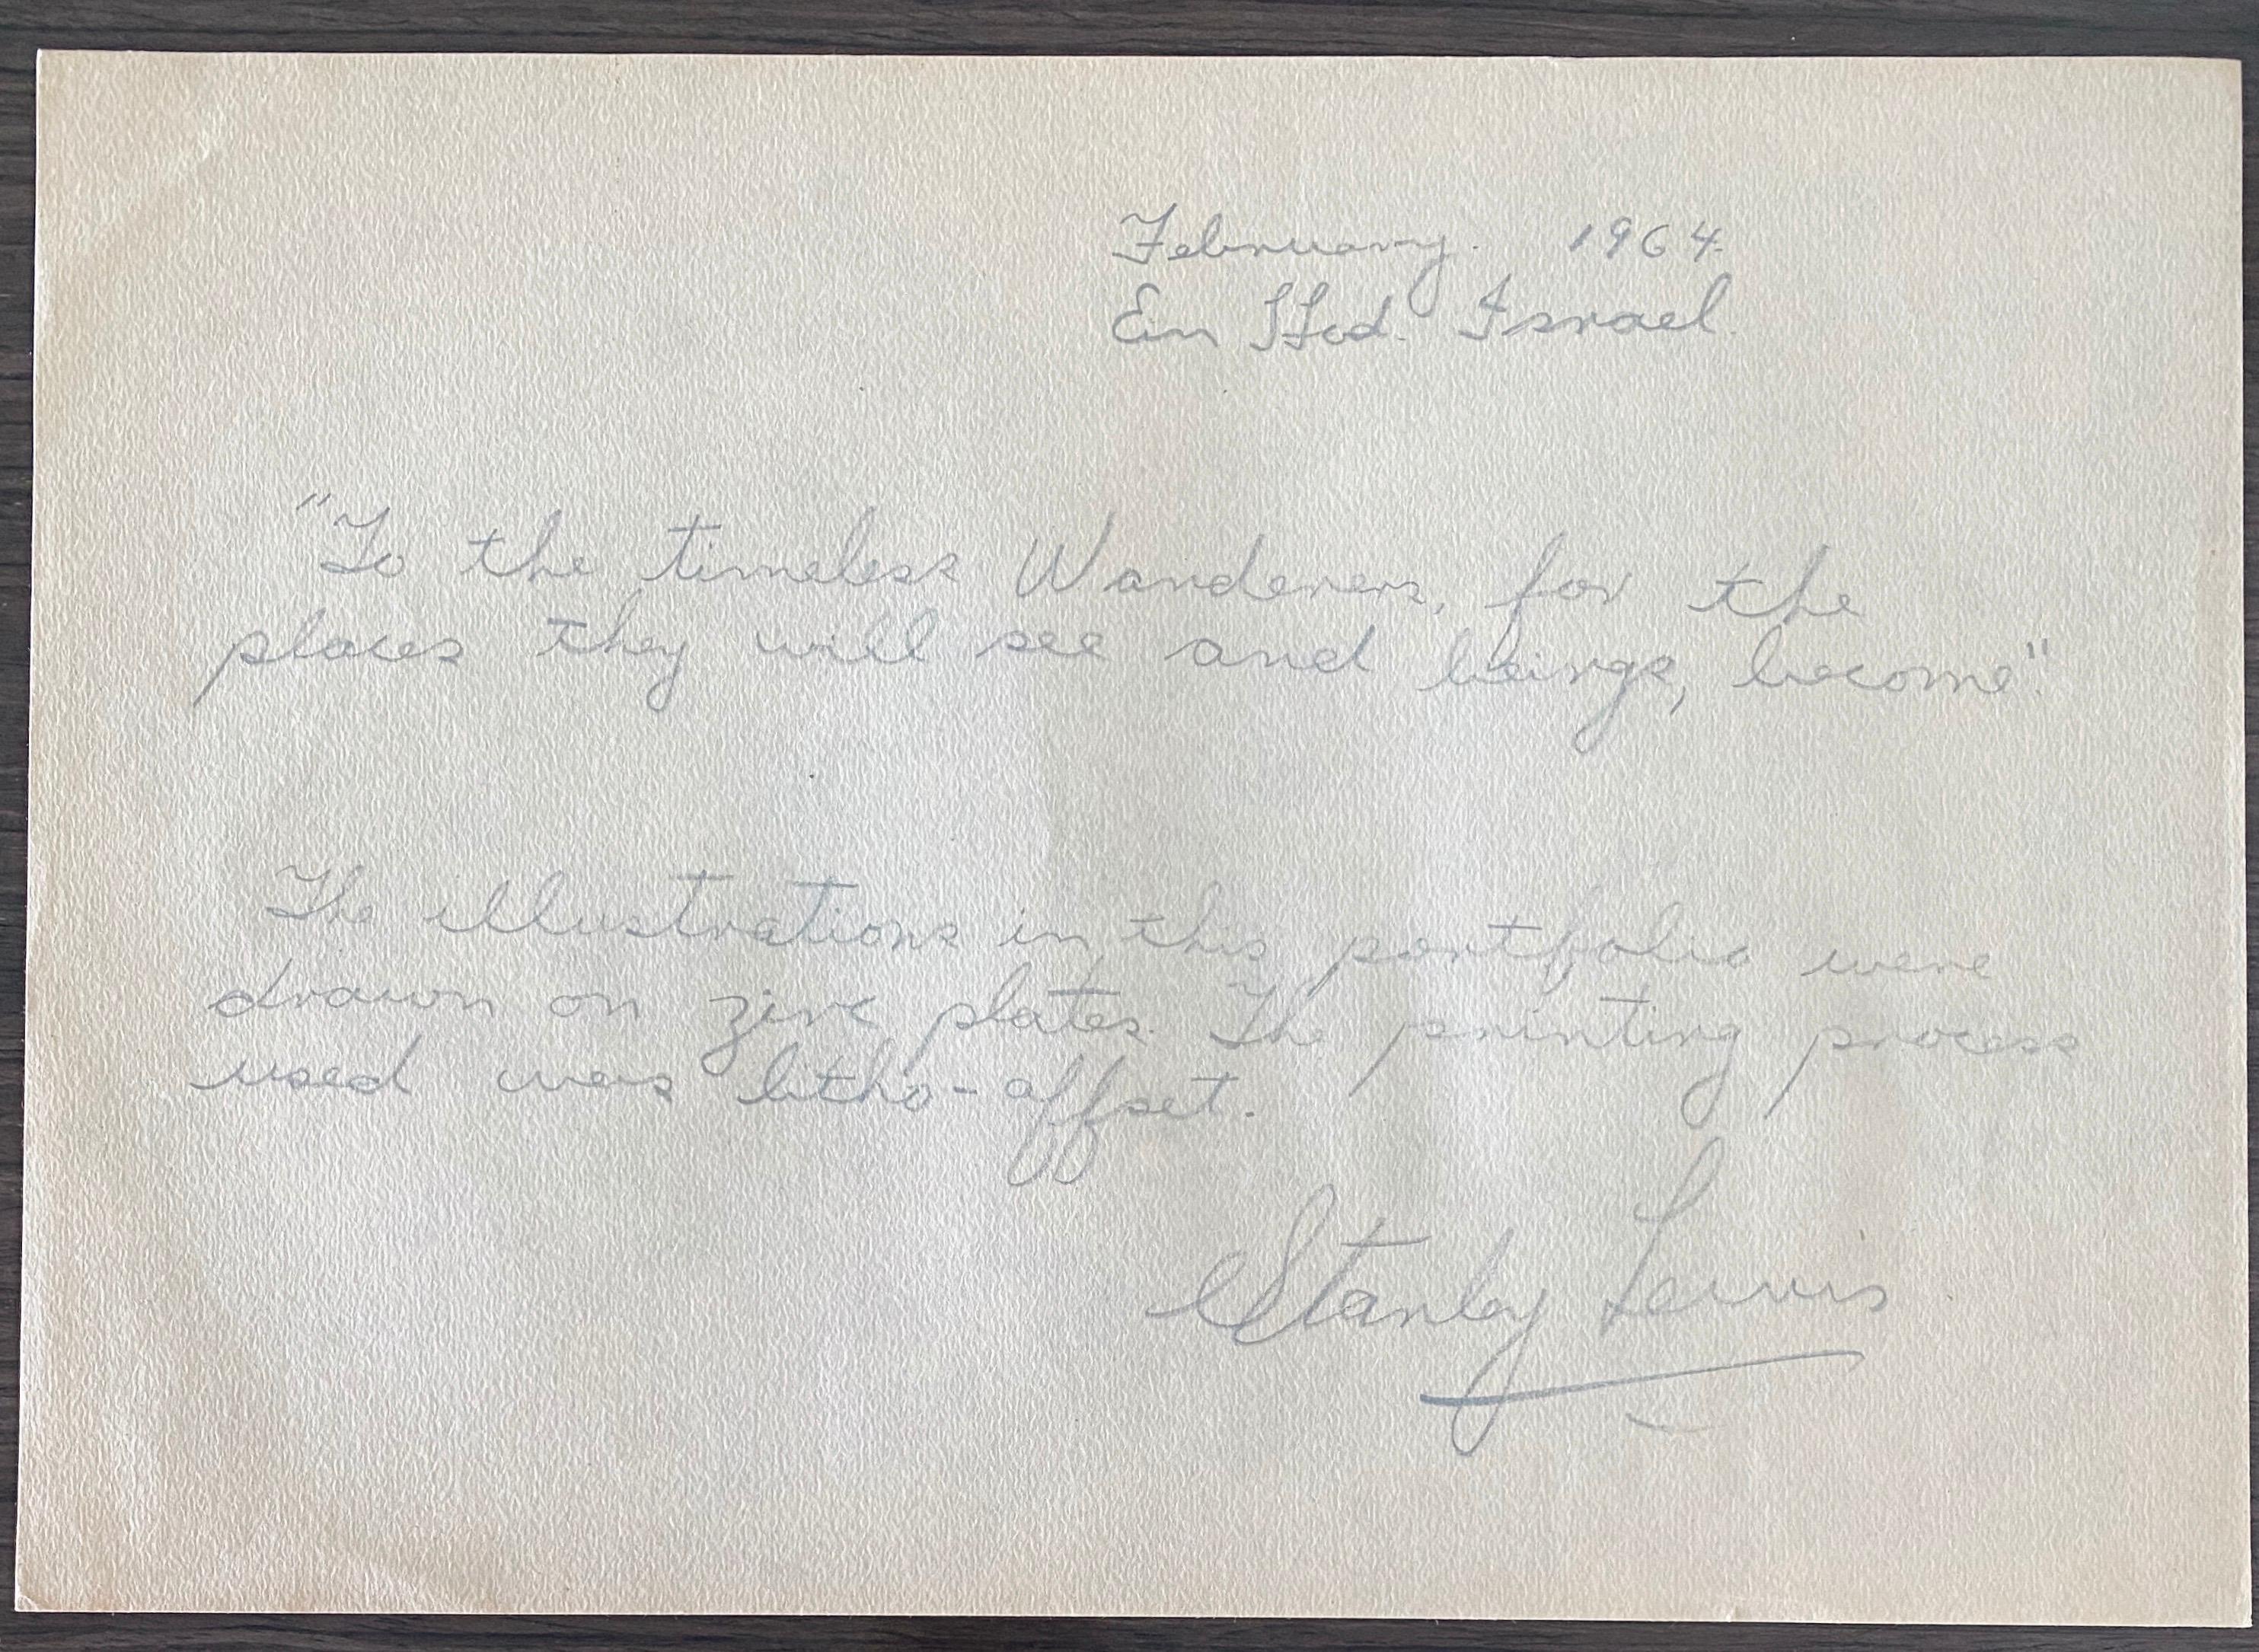 February. 1964.
Ein Hod. Israel.
"To the timeless Wanderers, for the
places they will see and beings, become".
The illustrations in this portfolio were
drawn on zinc plates. The printing process
used was litho-offset.
Stanley Lewis